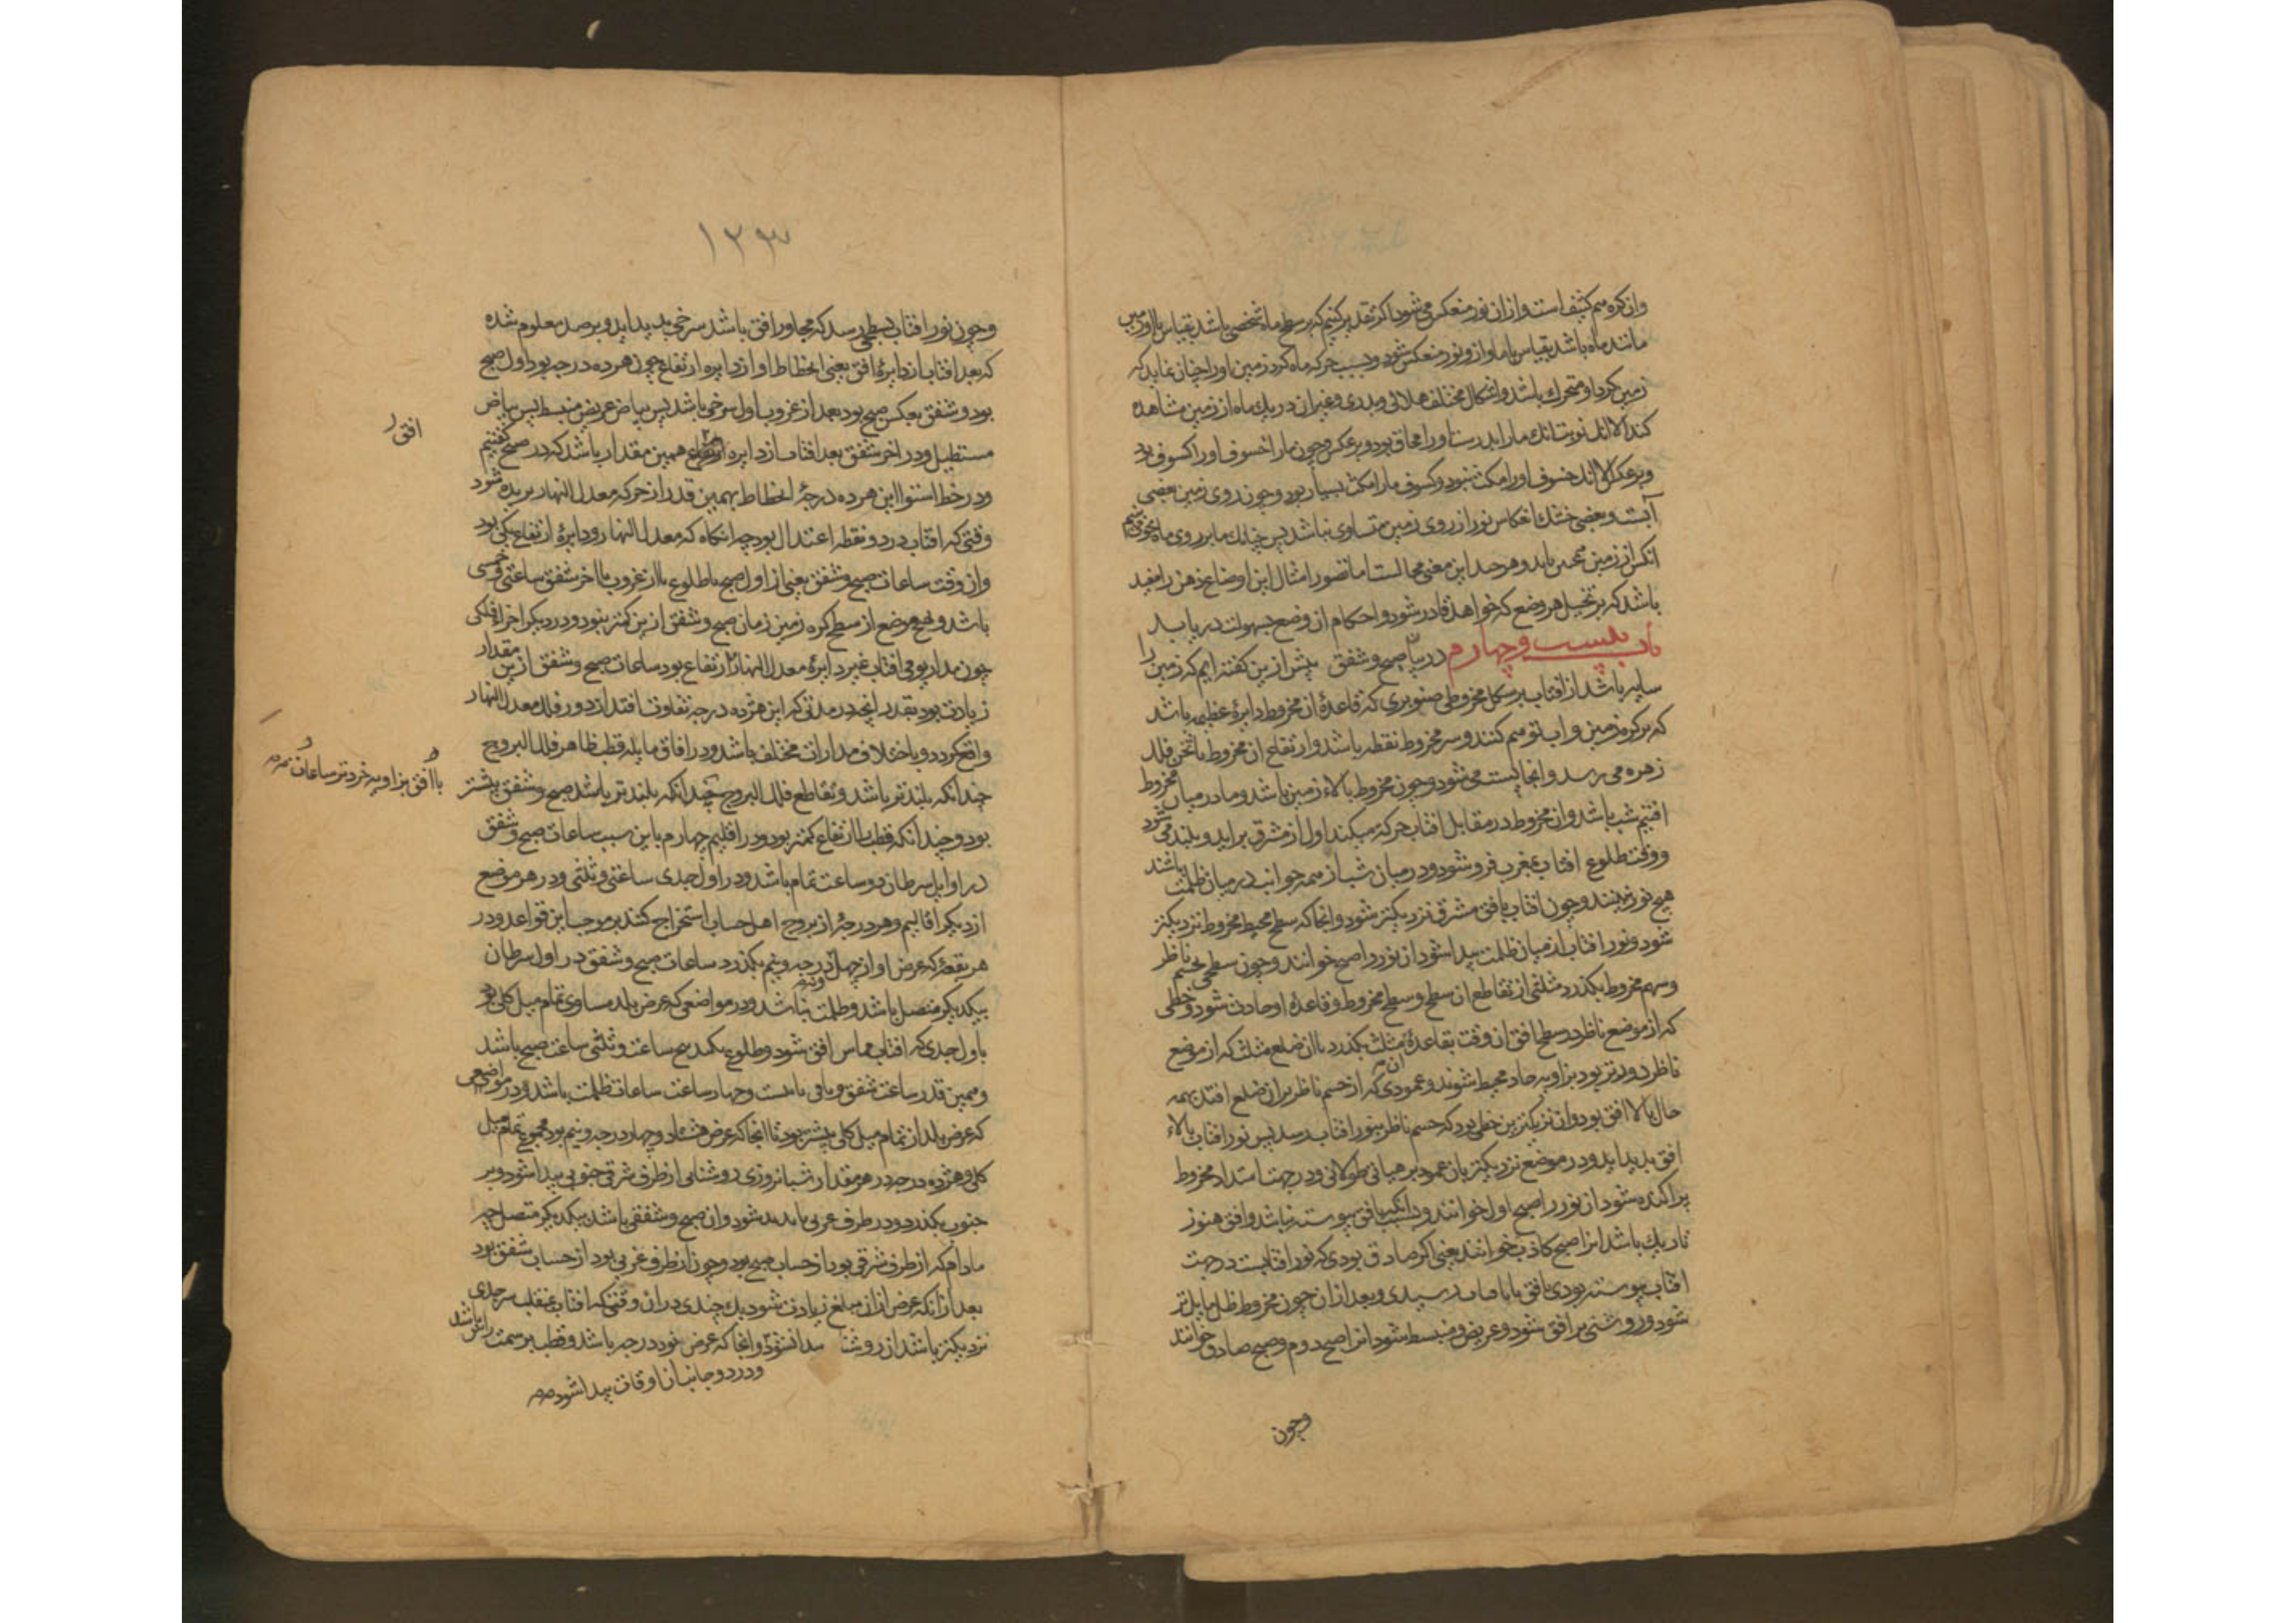 وان کره هم کثیف است و ازان نور منعکس می شود اگر تقدیر کنیم که بر سطح ماه شخصی باشد بقیاس با او زمین
مانند ماه باشد بقیاس با ما و ازو نور منعکس شود و بسبب حرکه ماه کرد زمین او را چنان نماید که
زمین کرد او متحرک باشد و اشکال مختلف هلالی و بدری و غیر ان در یک ماه از زمین مشاهده
کند الا انک نوبتانک ما را بدرست او را محاق بود و برعکس و چون ما را خسوف او را کسوف بود
و برعکس الا انک خسوف او را مکث نبود و کسوف ما را مکث بسیار بود و چون روی زمین بعضی
آبست و بعضی خشک انعکاس نور از روی زمین متساوی نباشد پس چنانک ما بر روی ماه محو می بینیم
انکس از زمین همچنین یابد و هرچند این معنی محالست اما تصور امثال این اوضاع ذهن را مفید
باشد که بر تخیل هر وضع که خواهد قادر شود و احکام ان وضع بسهولت دریابد
باب بیست و چهارم در بیان صبح و شفق پیش ازین گفته ایم که زمین را
سایه باشد از افتاب بر شکل مخروطی صنوبری که قاعدۀ ان مخروط دایرۀ عظیمه باشد
که بر کره زمین و اب توهم کنند و سر مخروط نقطه باشد و ارتفاع ان مخروط تا ثخن فلک
زهره می رسد و انجا نیست می شود و چون مخروط بالاء زمین باشد و ما در میان مخروط
افتیم شب باشد و ان مخروط در مقابل افتاب حرکة میکند اول از مشرق براید و بلند می شود
و وقت طلوع افتاب بمغرب فرو شود و در میان شب از همه جوانب در میان ظلمت باشند
هیچ نور نبینند و چون افتاب بافق مشرق نزدیکتر شود و انجا که سطح محیط مخروط نزدیکتر
شود و نور افتاب از میان ظلمت پیدا شود ان نور را صبح خوانند و چون سطحی بچشم ناظر
و سهم مخروط بکذرد مثلثی از تقاطع ان سطح و سطح مخروط و قاعدۀ او حادث شود و خطی
که از موضع ناظر در سطح افق ان وقت بقاعدۀ مثلث بکذرد با ان ضلع مثلث که از موضع
ناظر دورتر بود بزاویه حاد محیط شوند و عمودی که از چشم ناظر بران ضلع افتد بهمه
حال بالاء افق بود و ان نزدیکترین خطی بود که چشم ناظر بنور افتاب رسد پس نور افتاب بالاء
افق پدید اید و در موضع نزدیکتر بان عمود بر هیاتی طولانی و در جهت امتداد مخروط
پراکنده شود ان نور را صبح اول خوانند و بسبب انکه بافق پیوسته نباشد و افق هنوز
تاریک باشد انرا صبح کاذب خوانند یعنی اکر صادق بودی که نور افتابست در جهت
افتاب پیوسته بودی بافق رسیدی و بعد ازان چون مخروط ظل مایل تر
شود و روشنی بر افق شود و عریض و منبسط شود انرا صبح دوم و صبح صادق خوانند
وچون
۱۲۳
و چون نور افتاب بسطحی رسد که مجاور افق باشد سرخی پدید اید و برصد معلوم شده
که بعد افتاب از دایرۀ افق یعنی انحطاط او از دایره ارتفاع چون هژده درجه بود اول صبح
بود و شفق بعکس صبح بود بعد از غروب اول سرخی باشد پس بیاض عریض منبسط پس بیاض
مستطیل و در اخر شفق بعد افتاب از دایره همین مقدار باشد که در صبح کفتیم
افق
و در خط استوا این هژده درجۀ انحطاط بهمین قدر از حرکه معدل النهار بریده شود
وقتی که افتاب در دو نقطه اعتدال بود چه انکاه که معدل النهار و دایرۀ ارتفاع یکی بود
و ان وقت ساعات صبح و شفق یعنی از اول صبح تا طلوع یا از غروب تا اخر شفق ساعتی و خمسی
باشد و هیچ موضع از سطح کره زمین زمان صبح و شفق ازین کمتر نبود و در دیکر اجزاء فلکی
چون مدار یومی افتاب غیر دایرۀ معدل النهار بود ساعات صبح و شفق ازین مقدار
زیادت بود بقدر انچه در مدتی که این هژده درجه تفاوت افتد از دور فلک معدل النهار
واقع کردد و باختلاف مدارات مختلف باشد و در افاق مایله قطب ظاهر فلک البروج
چندانکه بلندتر باشد و تقاطع فلک البروج با افق بزاویه خردتر ساعات صبح و شفق بیشتر
بود و چندانکه قطب را ارتفاع کمتر بود و در اقلیم چهارم باین سبب ساعات صبح و شفق
در اوایل سرطان دو ساعت تمام باشد و در اول جدی ساعتی و ثلثی و در هر موضع
از دیکر اقالیم و هر درجۀ از بروج اهل حساب استخراج کنند بر موجب این قواعد و در
هر بقعۀ که عرض او از چهل درجه و نیم بکذرد ساعات صبح و شفق در اول سرطان
بیکدیکر متصل باشد و ظلمت نباشد و در مواضعی که عرض بلد مساوی تمام میل کلی بود
باول جدی که افتاب مماس افق شود و طلوع نکند پنج ساعت و ثلثی ساعت صبح باشد
و همین قدر ساعت شفق و باقی تا بیست و چهار ساعت ساعات ظلمت باشد و در مواضعی
که عرض بلد از تمام میل کلی بیشتر بود تا انجا که عرض هشتاد و چهار درجه و نیم بود مجموع تمام میل
کلی و هژده درجه در هر مقدار شبانروزی روشنایی از طرف شرقی جنوبی پیدا شود و بر
جنوب بکذرد و در طرف غربی ناپدید شود و ان صبح و شفقی باشد بیکدیکر متصل چه
مادام که از طرف شرقی بود از حساب صبح بود و چون از طرف غربی بود از حساب شفق بود
بعد از انکه عرض ازان مبلغ زیادت شود یک چندی دران وقتی که افتاب بمنقلب سر جدی
نزدیکتر باشد ان روشنا پیدا نشود و انجا که عرض نود درجه باشد و قطب بر سمت راس باشد
و در دو جانب ان اوقات پیدا شود